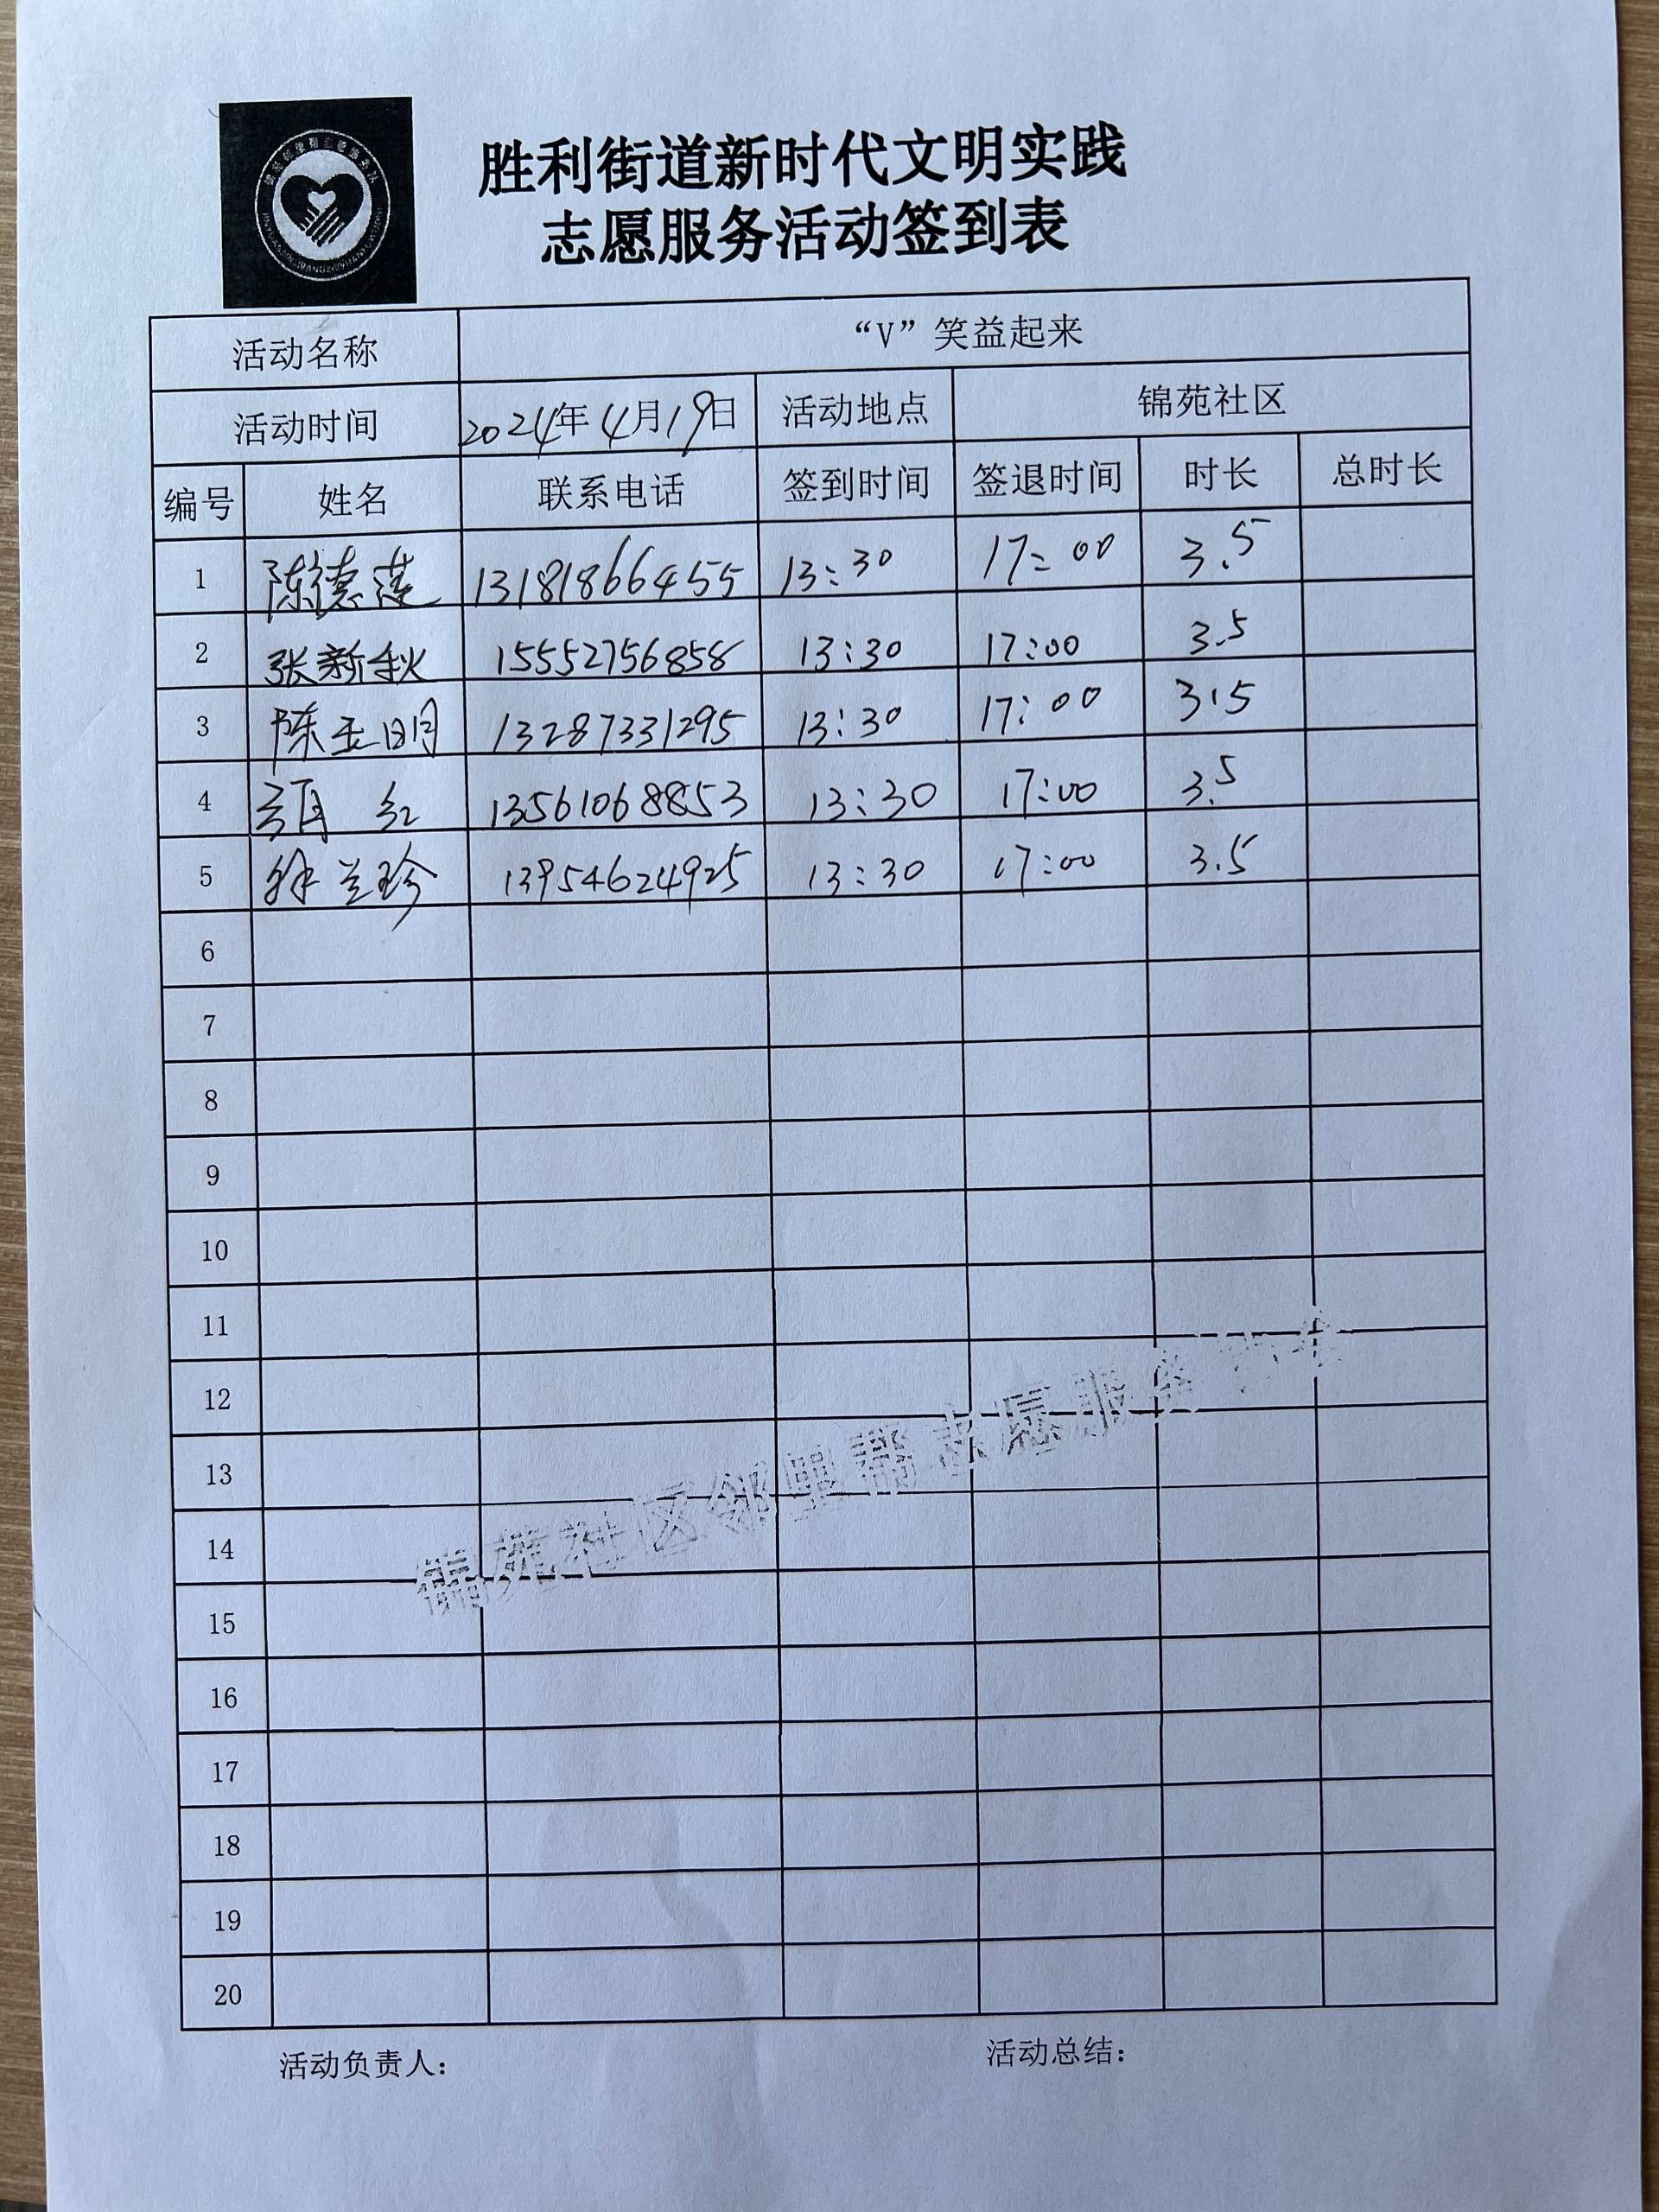 胜利街道新时代文明实践
志愿服务活动签到表
活动名称 “V”笑益起来
活动时间 2024年4月19日 活动地点 锦苑社区
编号 姓名 联系电话 签到时间 签退时间 时长 总时长
1 陈德莲 13181866455 13:30 17:00 3.5
2 张新秋 15552756858 13:30 17:00 3.5
3 陈玉明 13287331295 13:30 17:00 3.5
4 红 13561068853 13:30 17:00 3.5
5 徐兰珍 13954624925 13:30 17:00 3.5
6
7
8
9
10
11
12
13
14
15
16
17
18
19
20
锦苑社区邻里帮志愿服务
活动负责人: 活动总结: